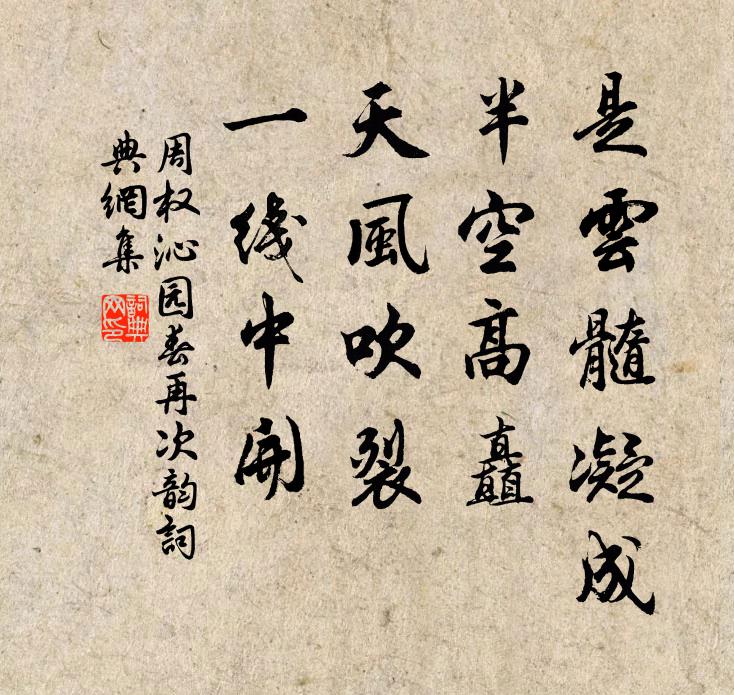 是雲髓凝成
半空高矗
天風吹裂
一綫中開
周权沁园春再次韵詞
典網集
詞典
网印